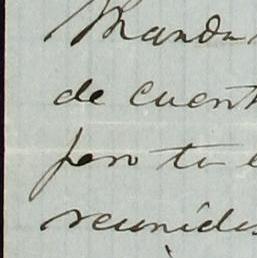 Mandu
de cuent
pero tu e
reunidos